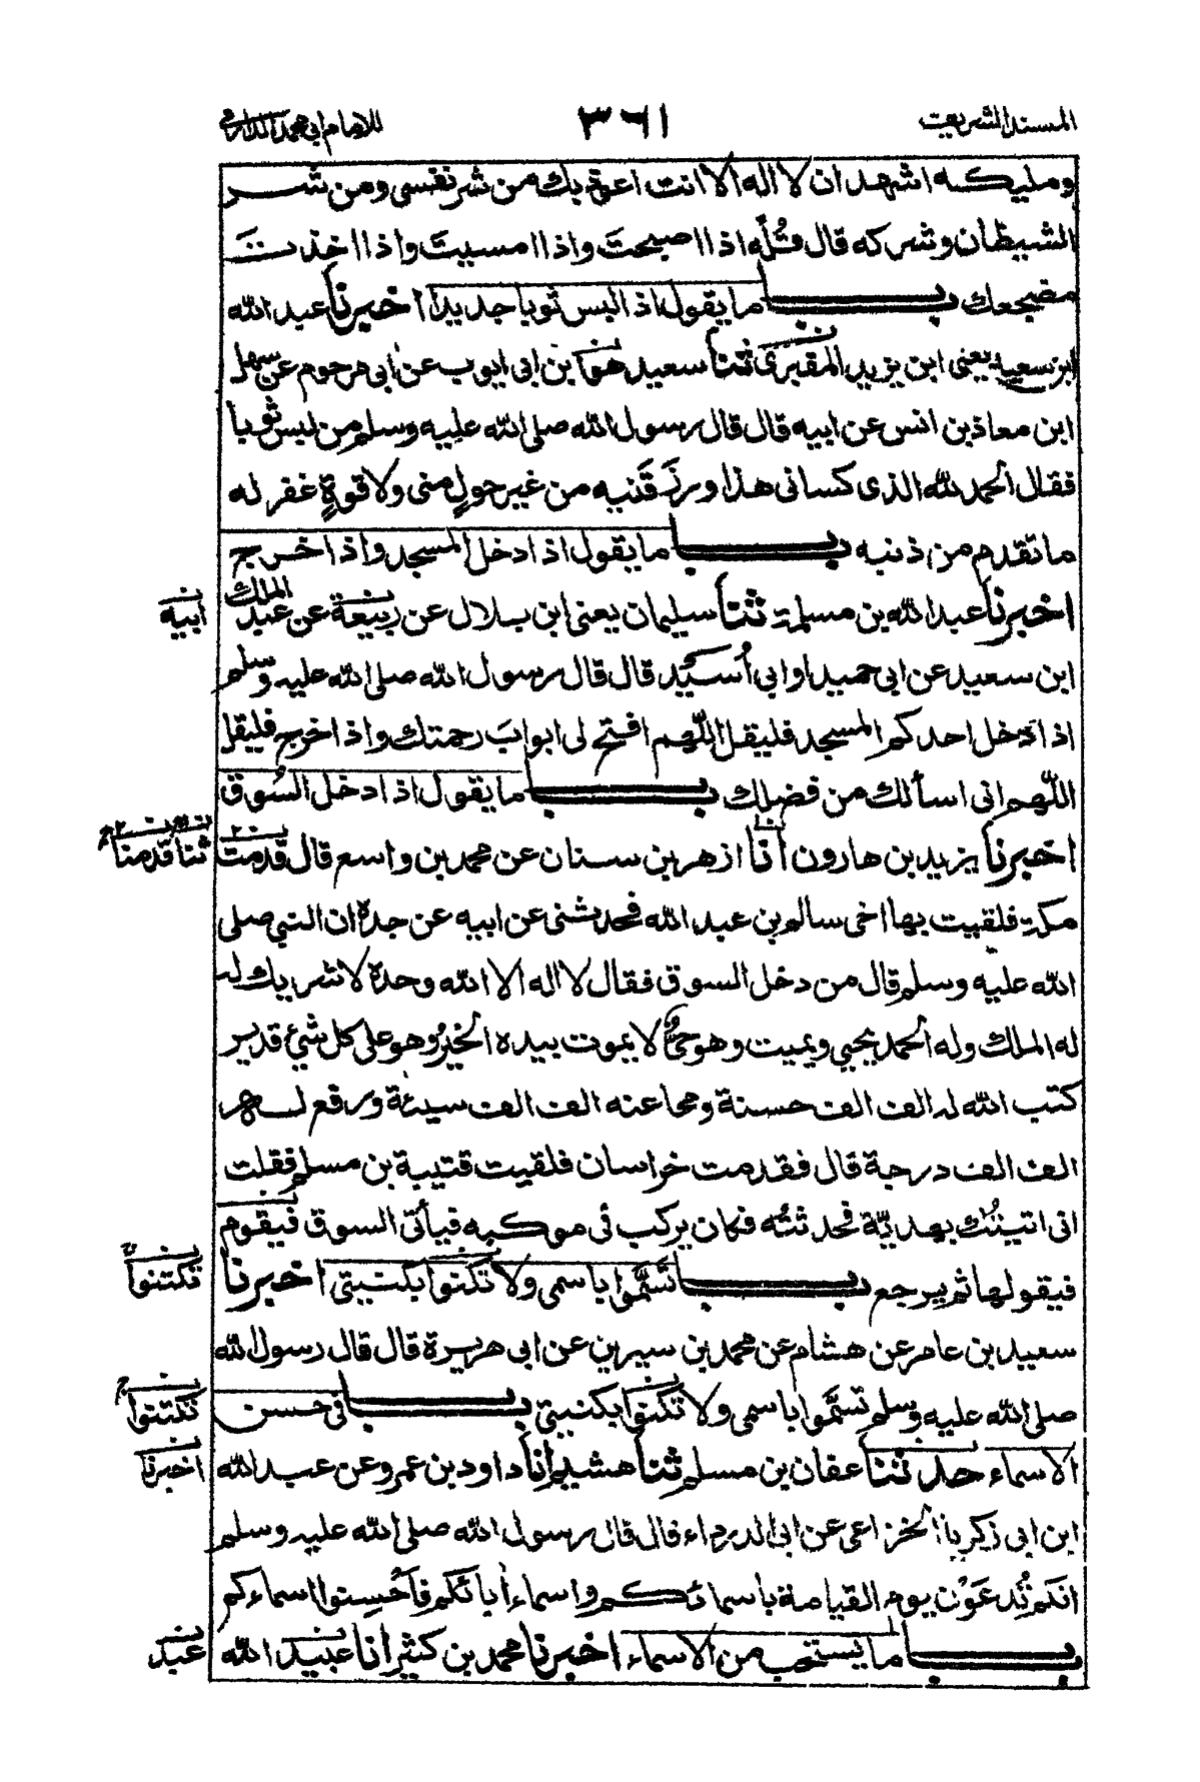 المسند الشريعت ٣٦١ للامام ابي محمد الدارمي
ومليكه اشهد ان لا اله الا انت اعوذ بك من شر نفسي ومن شر
الشيطان وشركه قال قُلْه اذا اصبحت واذا امسيتَ واذا اخذتَ
مضجعك باب ما يقول اذا لبس ثوبا جديدا اخبرنا عبد الله
ابن سعيد يعنى ابن يزيد المقبرى ثنا سعيد هو ابن ابى ايوب عن ابى مرحوم عن سهل
ابن معاذ بن انس عن ابيه قال قال رسول الله صلى الله عليه وسلم من لبس ثوبا
فقال الحمد لله الذى كسانى هذا ورزَقَنيه من غير حولٍ منى ولا قوةٍ غفر له
ما تقدم من ذنبه باب ما يقول اذا دخل المسجد واذا خرج
اخبرنا عبد الله بن مسلمة ثنا سليمان يعنى ابن بلال عن ربيعة عن عبد الملك
ابيه
ابن سعيد عن ابى حميد او ابي اُسَيْد قال قال رسول الله صلى الله عليه وسلم
اذا دخل احدكم المسجد فليقل اللّٰهم افتح لى ابوابَ رحمتك واذا خرج فليقل
اللّٰهم انى اسألك من فضلك باب ما يقول اذا دخل السُوق
اخبرنا يزيد بن هارون انا ازهر بن سنان عن محمد بن واسع قال قدمت
ثنا قدمنا
مكة فلقيت بها اخى سالم بن عبد الله فحدثنى عن ابيه عن جده ان النبي صلى
الله عليه وسلم قال من دخل السوق فقال لا اله الا الله وحدة لا شريك له
له الملك وله الحمد يحيي ويميت وهو حىٌّ لا يموت بيده الخيرُ وهو على كل شئ قدير
كتب الله له الف الف حسنة ومحا عنه الف الف سيئة ورفع له
الف الف درجة قال فقدمت خراسان فلقيت قتيبة بن مسلم فقلت
انى اتيتُك بهديّة فحدثتُه فكان يركب فى موكبه فيأتى السوق فيقوم
فيقولها ثم يرجع باب تسَمَّوا باسمى ولا تكنوا بكنيتى اخبرنا
تكتنوا
سعيد بن عامر عن هشام عن محمد بن سيرين عن ابى هريرة قال قال رسول الله
صلى الله عليه وسلم تسَمَّوا باسمى ولا تكنوا بكنيتى باب فى حسن
تكتنوا
الاسماء حدثنا عفان بن مسلم ثنا هشيم انا داود بن عمرو عن عبد الله
اخبرنا
ابن ابى زكريا الخزاعى عن ابى الدرداء قال قال رسول الله صلى الله عليه وسلم
انكم تُدعَوْن يوم القيامة باسمائكم واسماء اٰبائكم فاَحْسِنوا اسماءكم
باب ما يستحب من الاسماء اخبرنا محمد بن كثير انا عبيد الله
عبد